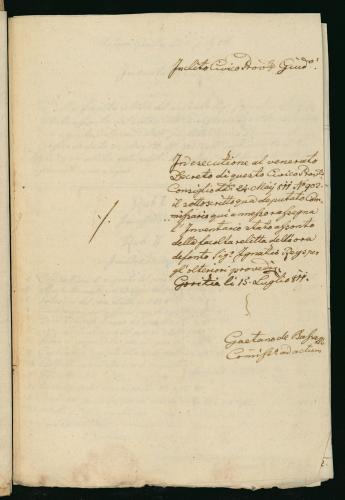 Inclito Civico Prov. Giud.º!
In esecutione al venerato
Decreto di questo Civico Prov.
Consiglio dto. 24 Maij 811 Nº 902.
il sottoscritto qua deputato Com
missario qui annesso rassegna
l'Inventario stato assonto
della facoltà relitta dello ora
defonto Sigr. Ignatio per
gl'ulteriori provedi.
Goritia li 15. Luglio 811.
Gaetano de
Commiss.º ad actum